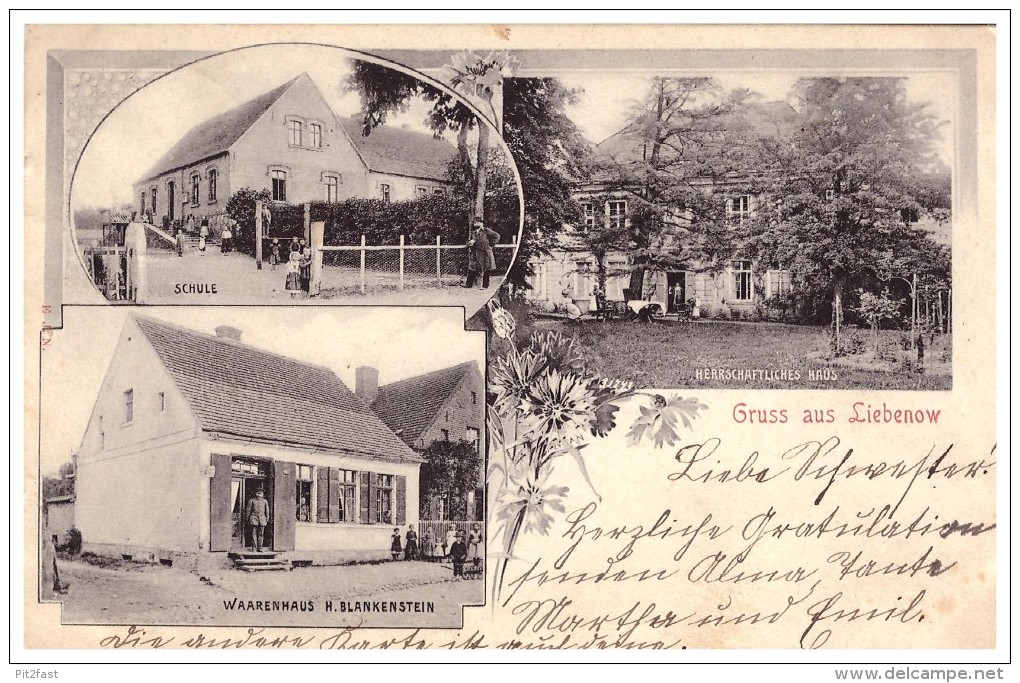 SCHULE
HERRSCHAFTLICHES HAUS
31243
Gruss aus Liebenow
Liebe Schwester!
Herzliche Gratulation
senden Alma, Tante
Martha und Emil.
WAARENHAUS H. BLANKENSTEIN
Die andere Karte ist auch deine.
Pit2fast
www.delcampe.net